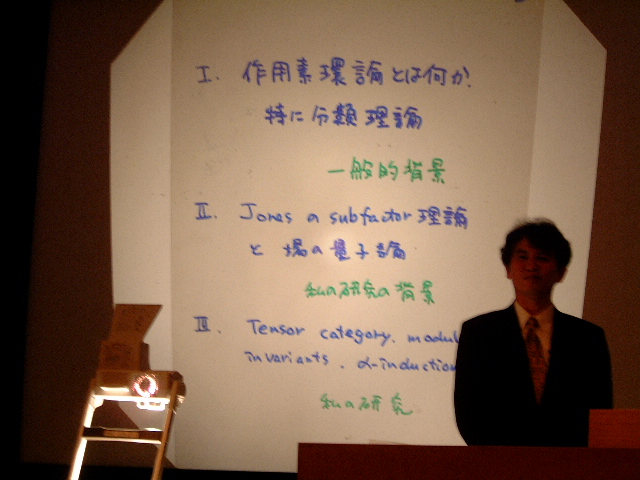 I. 作用素環論とは何か.
特に分類理論
一般的背景
II. Jones の subfactor 理論
と 場の量子論
私の研究の背景
III. Tensor category, modul
invariants, α-induction
私の研究